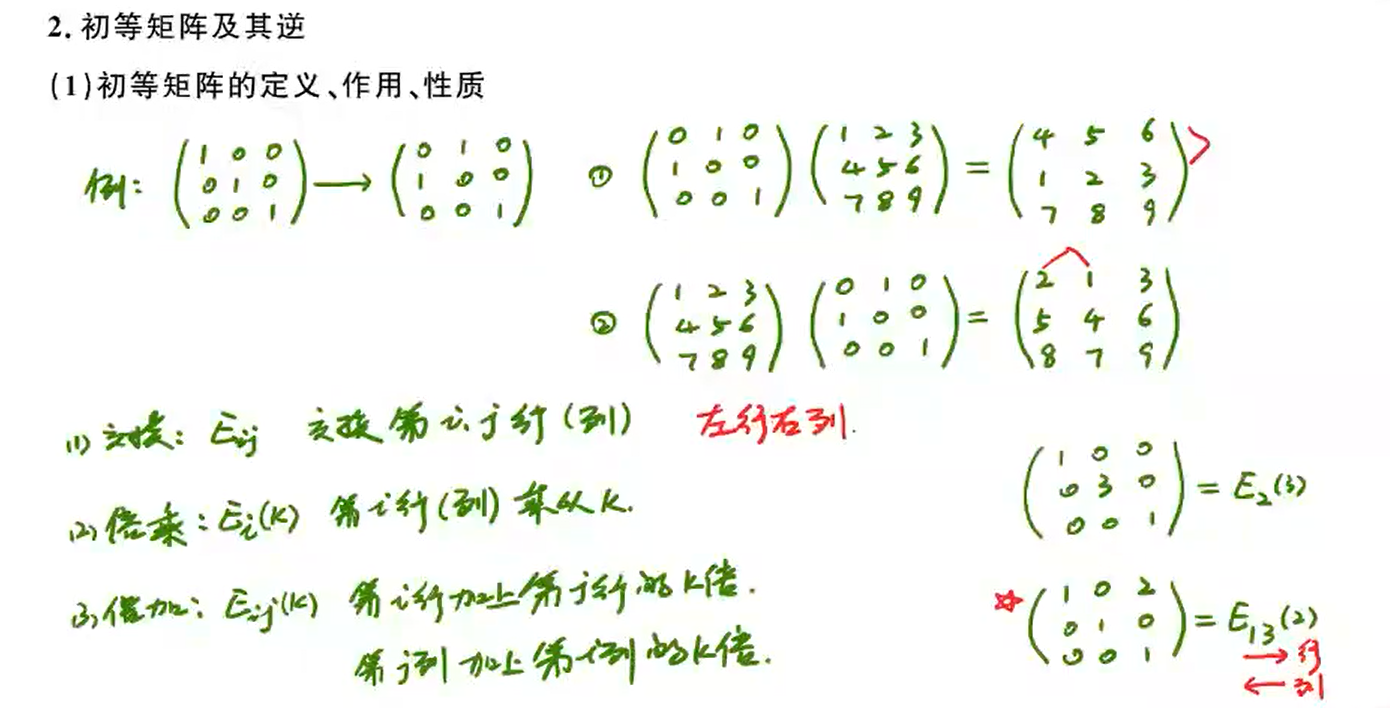 2. 初等矩阵及其逆
(1)初等矩阵的定义、作用、性质
例: (1 0 0; 0 1 0; 0 0 1) → (0 1 0; 1 0 0; 0 0 1)
① (0 1 0; 1 0 0; 0 0 1) (1 2 3; 4 5 6; 7 8 9) = (4 5 6; 1 2 3; 7 8 9)
② (1 2 3; 4 5 6; 7 8 9) (0 1 0; 1 0 0; 0 0 1) = (2 1 3; 5 4 6; 8 7 9)
(1) 交换: Eij 交换第i,j行(列) 左行右列.
(2) 倍乘: Ei(k) 第i行(列)乘以k.
(1 0 0; 0 3 0; 0 0 1) = E2(3)
(3) 倍加: Eij(k) 第i行加上第j行的k倍.
第j列加上第i列的k倍.
☆ (1 0 2; 0 1 0; 0 0 1) = E13(2)
→ 行
← 列